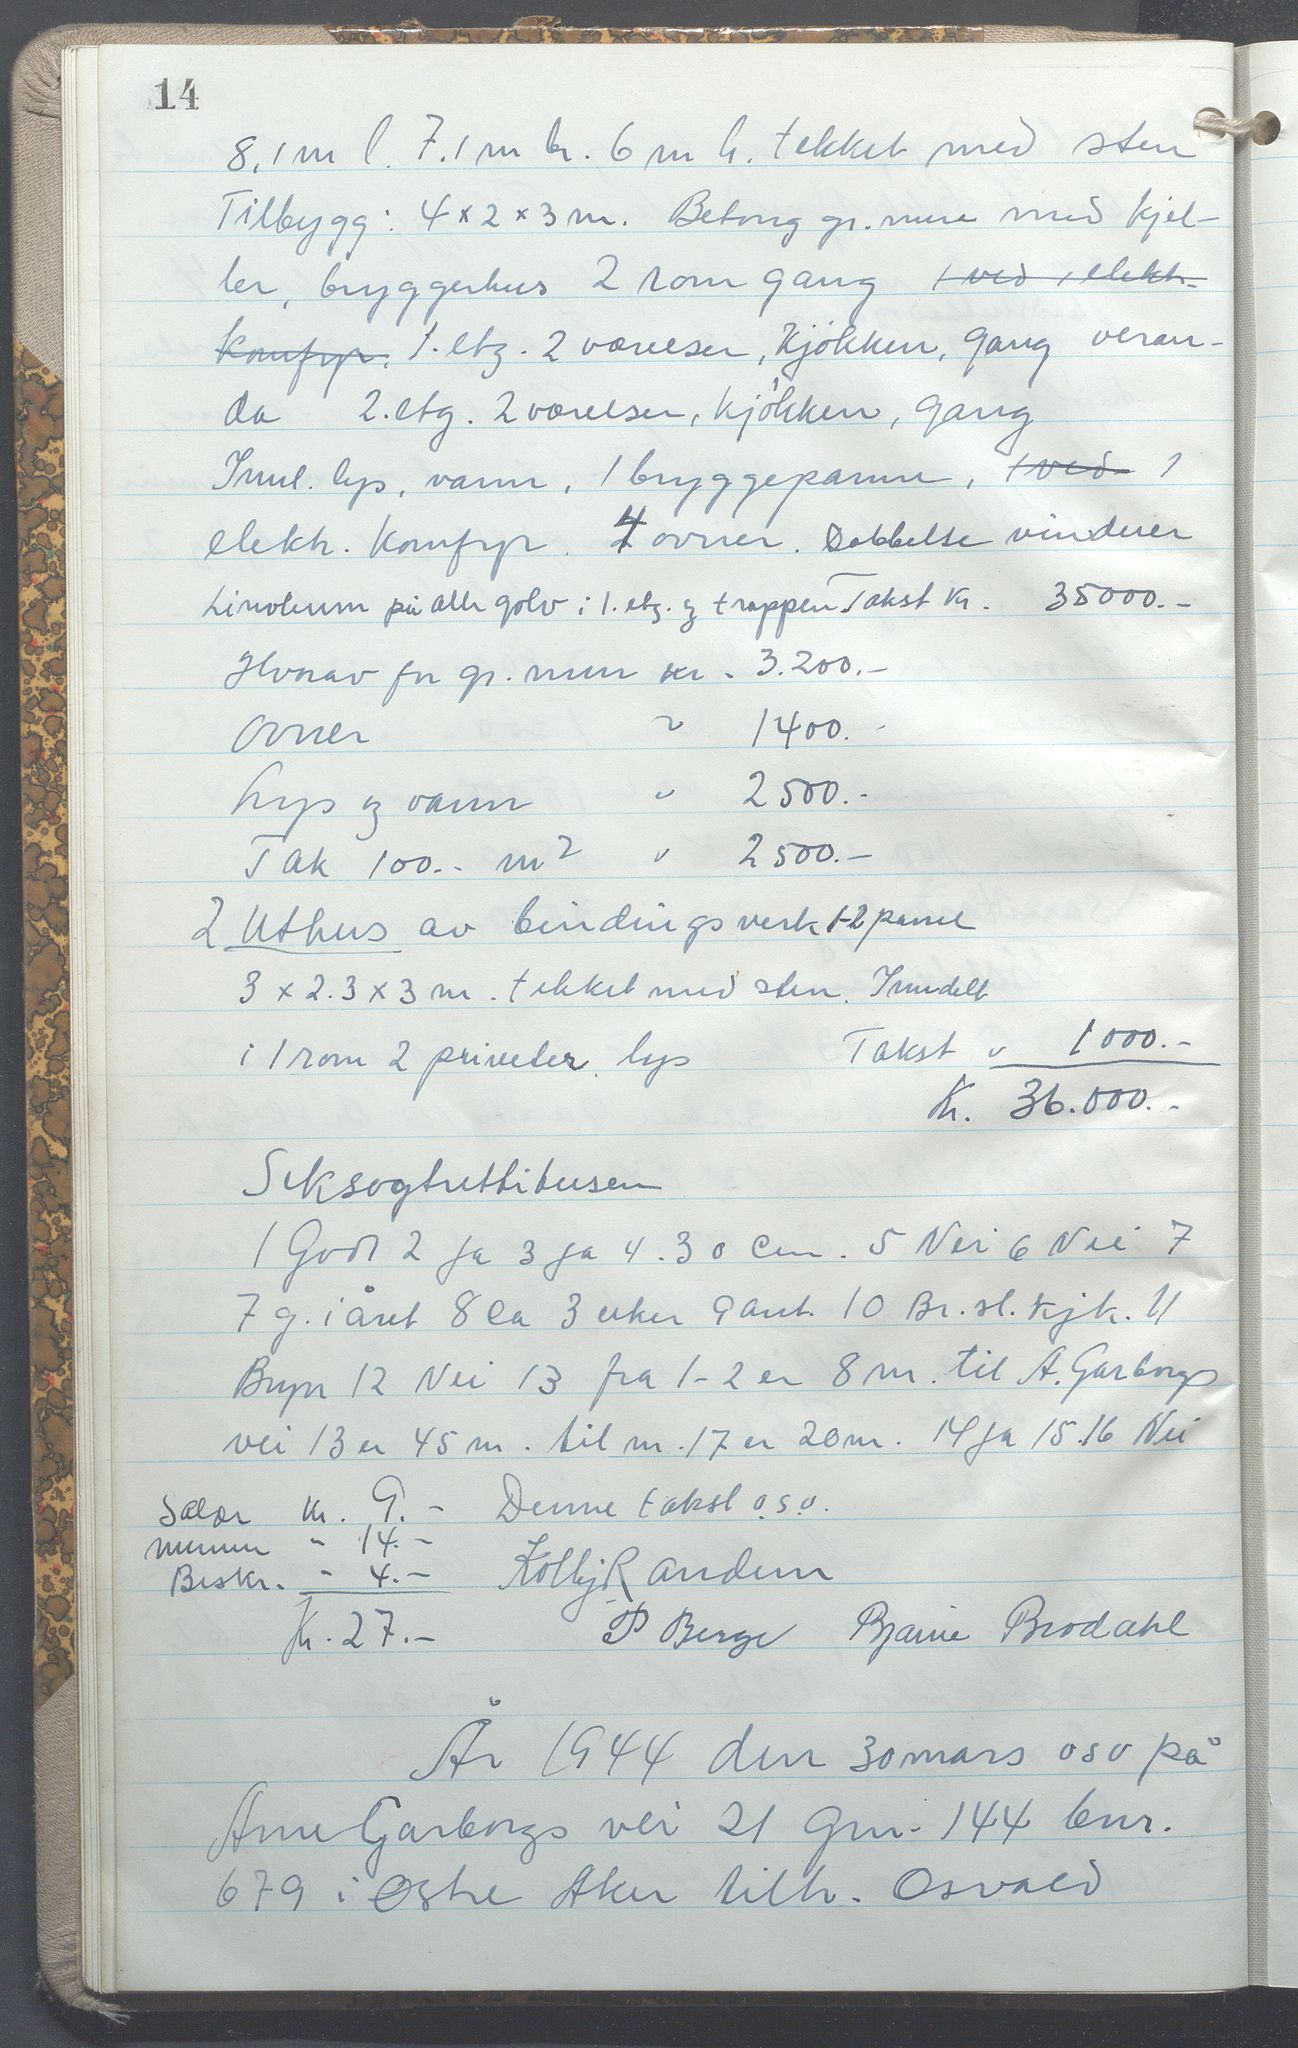 14
8,1 m l. 7,1 m br. 6 m h. tekket med sten
Tilbygg: 4 x 2 x 3 m. Betong gr. mur med kjel-
ler, bryggerhus 2 rom gang 1 ved 1 elektr.
komfyr. 1. etg. 2 værelser, kjökken, gang veran-
da 2. etg. 2 værelser, kjökken, gang
Innl. lys, vann, 1 bryggepanne, 1 ved 1
elektr. komfyr. 4 ovner. Dobbelte vinduer
Linoleum på alle golv i 1. etg. og trappen. Takst kr. 35000.-
Hvorav for gr. mur kr. 3.200.-
Ovner " 1400.-
Lys og vann " 2500.-
Tak 100.- m² " 2500.-
2 Uthus av bindingsverk 1-2 panel
3 x 2.3 x 3 m. tekket med sten. Inndelt
i 1 rom 2 priveter. lys Takst " 1000.-
Kr. 36.000.-
Seksogtrettitusen
1 Godt 2 Ja 3 Ja 4. 30 cm. 5 Nei 6 Nei 7
7 g. i året 8 Ca 3 uker 9 ant. 10 Br. sl. kjk. 11
Bryn 12 Nei 13 fra 1-2 er 8 m. til A. Garborgs
vei 13 er 45 m. til nr. 17 er 20 m. 14 Ja 15.16 Nei
Salær kr. 9.- Denne takst o.s.v.
" 14.- Kolbj Randem
Beskr. " 4.-
Kr. 27.- P Berge Bjarne Brodahl
År 1944 den 30 mars osv på
Arne Garborgs vei 21 Gnr. 144 bnr.
679 i Østre Aker tilh. Osvald